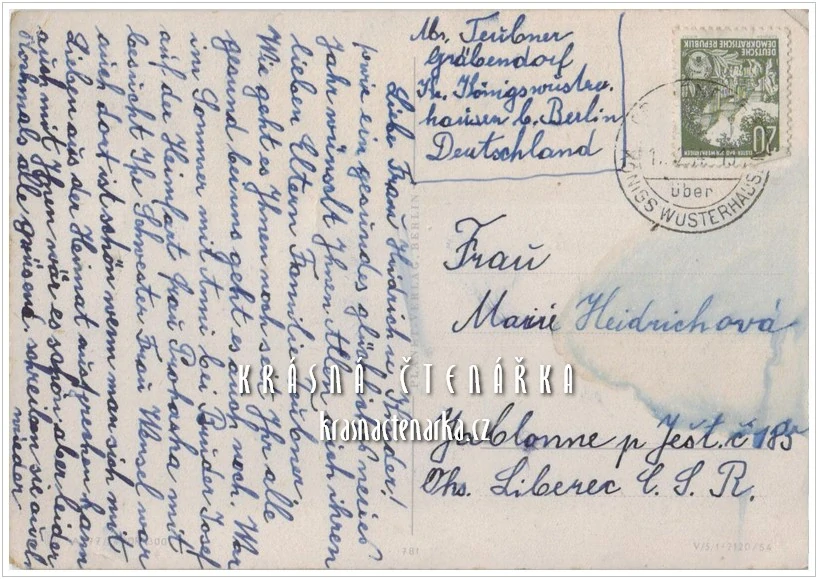 Liebe Frau Heidrich u. Kinder!
sowie ein gesundes glückliches neues
Jahr wünscht Ihnen Allen sich ihren
lieben Eltern Familie Teubner.
Wie geht es Ihnen noch sei Ihr alle
gesund bei uns geht es auch noch. War
im Sommer mit Anni bei Bruder Josef
auf der Heimfart frau Prohasha mit
besucht Ihr Schwester Frau Wensel war
auch dort ist schön wenn man sich mit
Lieben aus der Heimat aussprechen kann
auch mit Ihnen wär es schön aber leider
Nochmals alle grüsend, schreiben sie auch
wieder
Mr. Teubner
Gräbendorf
Kr. Königswuster-
hausen b. Berlin
Deutschland
DEUTSCHE
DEMOKRATISCHE REPUBLIK
20
über
KÖNIGS WUSTERHAUSEN
Frau
Marie Heidrichová
Jablonne p Ješt. č 185
Oks. Liberec Č. S. R.
KRÁSNÁ ČTENÁŘKA
krasnactenarka.cz
VERLAG, BERLIN
781
V/5/1-7120/54